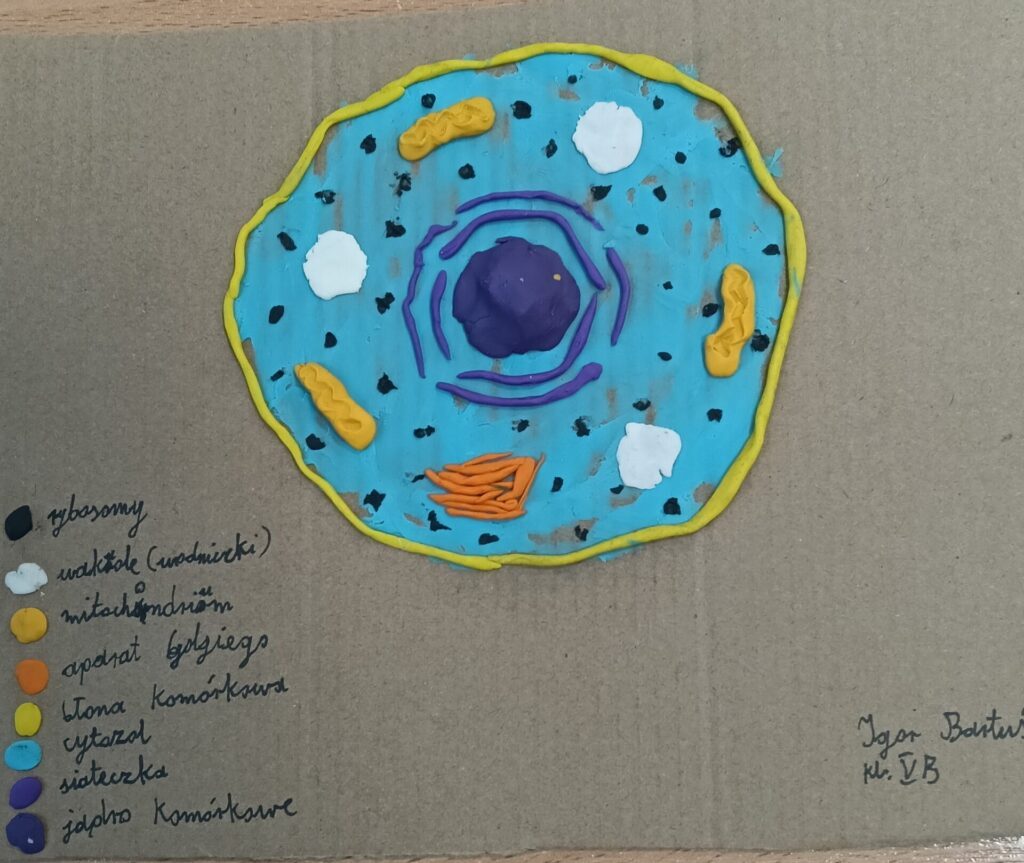 rybosomy
wakuole (wodniczki)
mitochondrium
aparat Golgiego
błona komórkowa
cytozol
siateczka
jądro komórkowe
Igor
kl. VB